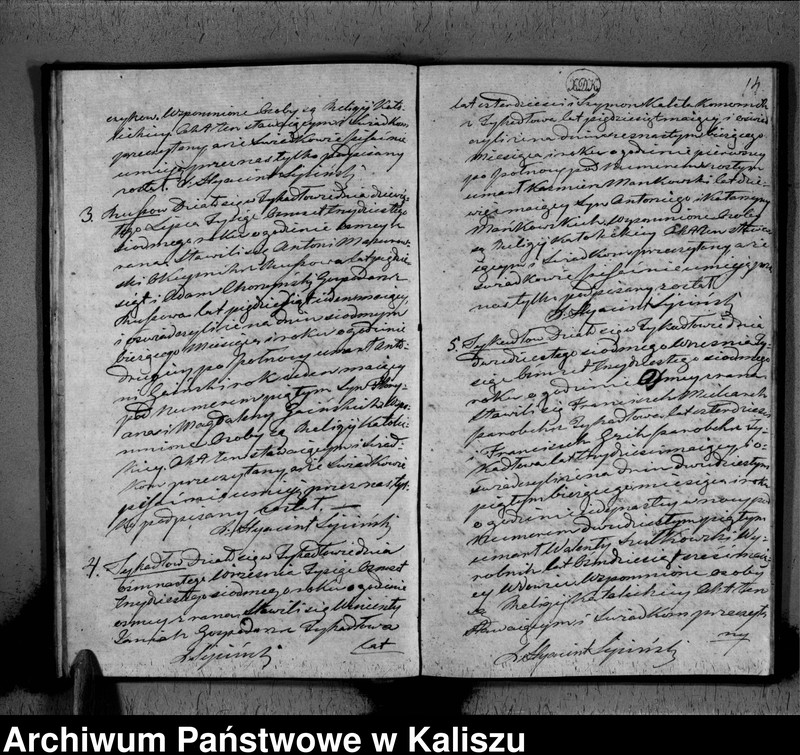 czykow. Wspomnione Osoby są Religij Kato-
lickiey. Akt ten stawaiącym i Swiadkom
przeczytany a że Swiadkowie pisać nie
umieią przez nas tylko podpisany
został. X. Hyacint Lyciński
3. Russow Działo się w Tykadłowie dnia dziewią-
tego Lipca Tysiąc Osmset trzydziestego
siodmego roku o godzinie osmey z
rana. Stawili się Antoni
ski Russowa lat
siąt i Adam Gospodarz z
Russowa lat pięćdziesiąt ieden maiący,
i oswiadczyli iż na dniu siodmym
bieżącego Miesiąca i roku o godzinie
drugiey po Połnocy umarł Anto-
ni rok ieden maiący
pod Numerem piątym Syn
i Magdaleny Wspo-
mnione Osoby są Religij Katolic-
kiey. Akt ten stawaiącym i Swiad-
kom przeczytany a że Swiadkowie
pisać nie umieią przez nas tyl-
ko podpisany został. —
X. Hyacint Lyciński
4. Tykadłow Działo się w Tykadłowie dnia
osmnastego Września Tysiąc Osmset
trzydziestego siodmego roku o godzinie
osmey z rana. Stawili się Wincenty
Janiak Gospodarz z Tykadłowa
X. Lyciński lat
KDK
14
lat czterdzieści i Szymon Kaleta Komornik
z Tykadłowa lat pięćdziesiąt maiący i oświad-
czyli iż na dniu bieżącego
Miesiąca i roku o godzinie pierwszey
po połnocy pod Numerem szostym
umarł Kazmierz Mankowski lat dzie-
więć maiący Syn Antoniego i Katarzyny
Mankowskich. Wspomnione Osoby
są Religij Katolickiey. Akt ten stawa-
iącym i Swiadkom przeczytany a że
Swiadkowie pisać nie umieią prz
nas tylko podpisany został
X. Hyacint Lyciński
5. Tykadłow Działo się w Tykadłowie dnia
Dwudziestego siodmego Września Ty-
siąc Osmset trzydziestego siodmego
roku o godzinie osmey z rana
Stawili się Franciszek
parobek z Tykadłowa lat czterdzieści
i Franciszek parobek z Ty-
kadłowa lat trzydzieści maiący i o-
swiadczyli iż na dniu dwudziestym
piątym bieżącego miesiąca i roku
o godzinie iedynastey w nocy pod
Numerem dwudziestym piątym
umarł Walenty Szulkowski Wy-
robnik lat
cy Wdowiec Wspomnione osoby
są Religij Katolickiey Akt ten
stawaiącym i Swiadkom przeczyta
X. Hyacint Lyciński ny
Archiwum Państwowe w Kaliszu